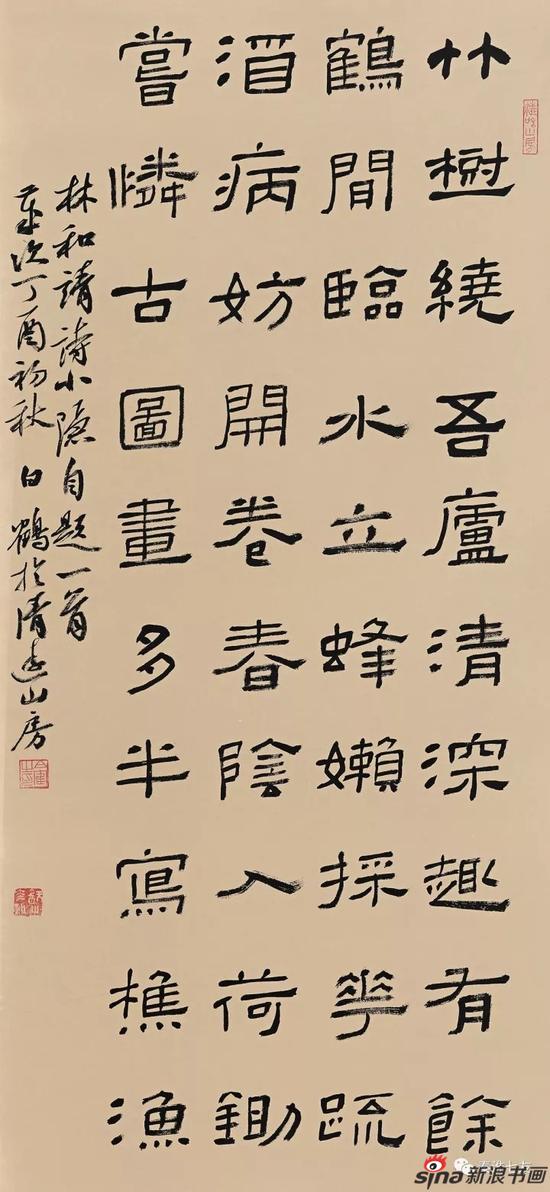 竹樹繞吾廬清深趣有餘
鶴間臨水立蜂嬾採華疏
酒病妨開卷春陰入荷鋤
嘗憐古圖畫多半寫樵漁
林和靖詩小隱自題一首
歲次丁酉初秋白鶴於清遠山房
sina新浪书画